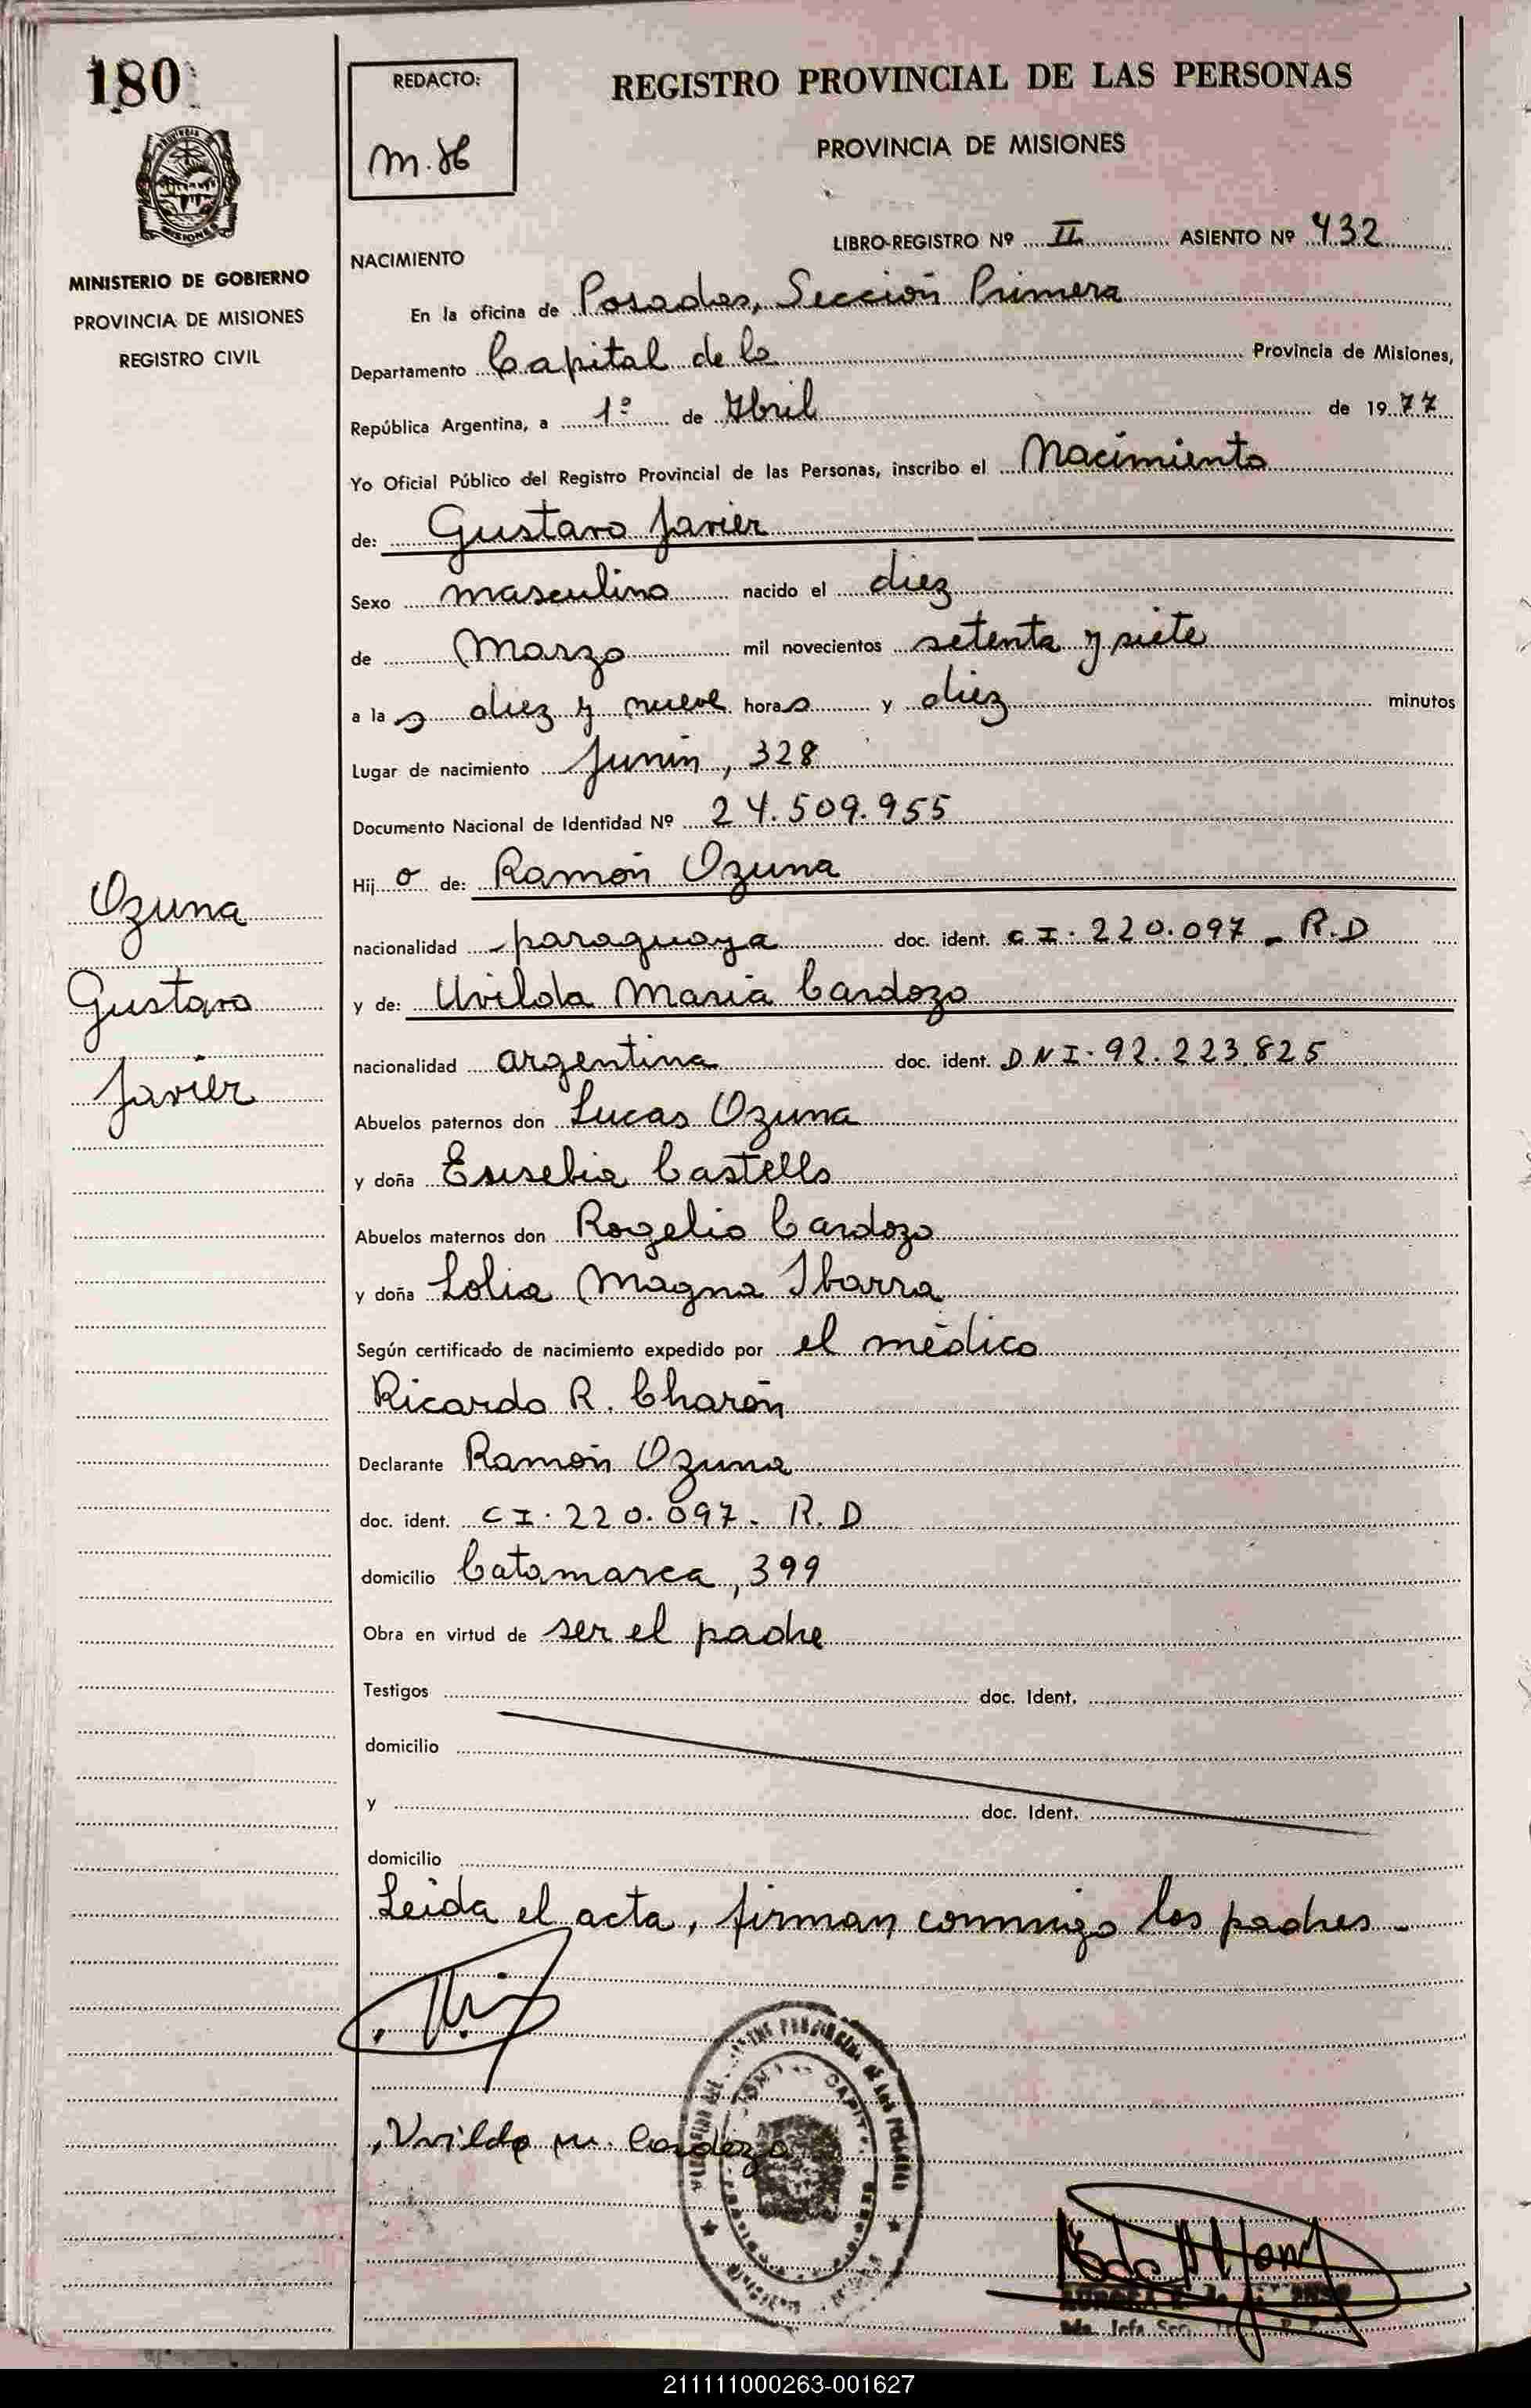 180
REDACTO:
REGISTRO PROVINCIAL DE LAS PERSONAS
PROVINCIA DE MISIONES
MISIONES
MINISTERIO DE GOBIERNO
PROVINCIA DE MISIONES
REGISTRO CIVIL
LIBRO-REGISTRO Nº II ASIENTO Nº 432
NACIMIENTO
En la oficina de Posadas, Sección Primera
Departamento Capital de la Provincia de Misiones,
República Argentina, a 1º de Abril de 1977
Yo Oficial Público del Registro Provincial de las Personas, inscribo el Nacimiento
de: Gustavo Javier
Sexo masculino nacido el diez
de Marzo mil novecientos setenta y siete
a las diez y nueve horas y diez minutos
Lugar de nacimiento Junín, 328
Documento Nacional de Identidad Nº 24.509.955
Hijo de: Ramón Ozuna
nacionalidad paraguaya doc. ident. CI. 220.097 - R.D
y de: Uvilda María Cardozo
nacionalidad argentina doc. ident. DNI. 92.223.825
Ozuna
Gustavo
Javier
Abuelos paternos don Lucas Ozuna
y doña Eusebia Castello
Abuelos maternos don Rogelio Cardozo
y doña Lolia Magna Ibarra
Según certificado de nacimiento expedido por el médico
Ricardo R. Charón
Declarante Ramón Ozuna
doc. ident. CI. 220.097. R.D
domicilio Catamarca, 399
Obra en virtud de ser el padre
Testigos doc. Ident.
domicilio
y doc. Ident.
domicilio
Leída el acta, firman conmigo los padres.
Uvilda M. Cardozo
211111000263-001627